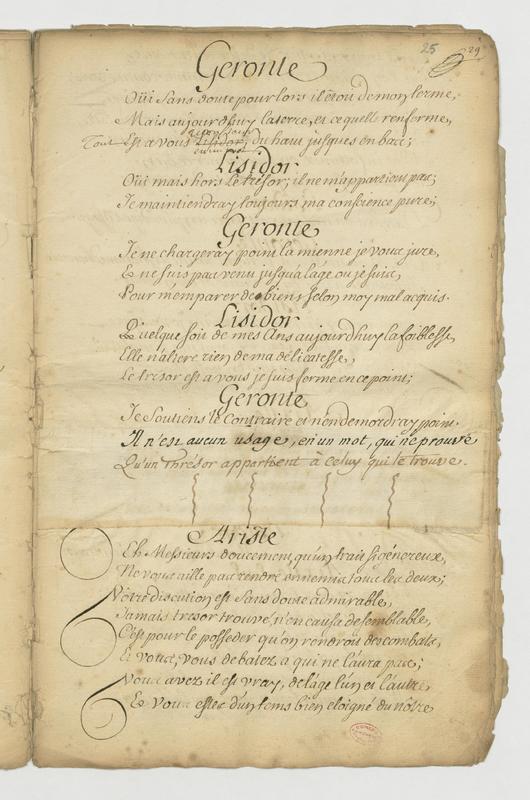 25 29
Geronte
Oüi sans doute pour lors il étoit de mon ferme,
Mais aujourdhuy la terre, et ce quelle renferme,
Tout Est a vous Lisidor, du haut jusques en bas;
Lisidor
Oüi mais hors le trésor; il ne m'appartient pas;
Je maintiendray toujours ma conscience pure;
Geronte
Je ne chargeray point la mienne je vous jure,
Et ne suis pas venu jusqu'a lage ou je suis,
Pour m'emparer des biens selon moy mal acquis.
Lisidor
Quelque soit de mes Ans aujourdhuy la foiblesse,
Elle n'altere rien de ma délicatesse,
Le tresor est a vous je suis ferme en ce point;
Geronte
Je Soutiens le Contraire et n'en demordray point.
Il n'est aucun usage, en un mot, qui ne prouve
Qu'un Thrésor appartient à celuy qui le trouve.
Ariste
Eh Messieurs doucement, qu'un trait si génereux,
Ne vous aille pas rendre ennemis tous les deux;
Vôtre discution est sans doute admirable,
Jamais tresor trouvé, n'en causa de semblable,
C'est pour le posseder qu'on rendroit des combats,
Et vous, vous debatez a qui ne l'aura pas;
Vous avez il est vray, de l'age l'un et l'autre,
Et Vous estes d'un tems bien eloigné du nôtre